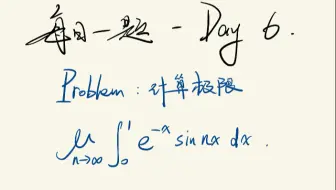 每日一题 - Day 6.
Problem: 计算极限
lim_{n→∞} ∫_0^1 e^{-x} sin nx dx.